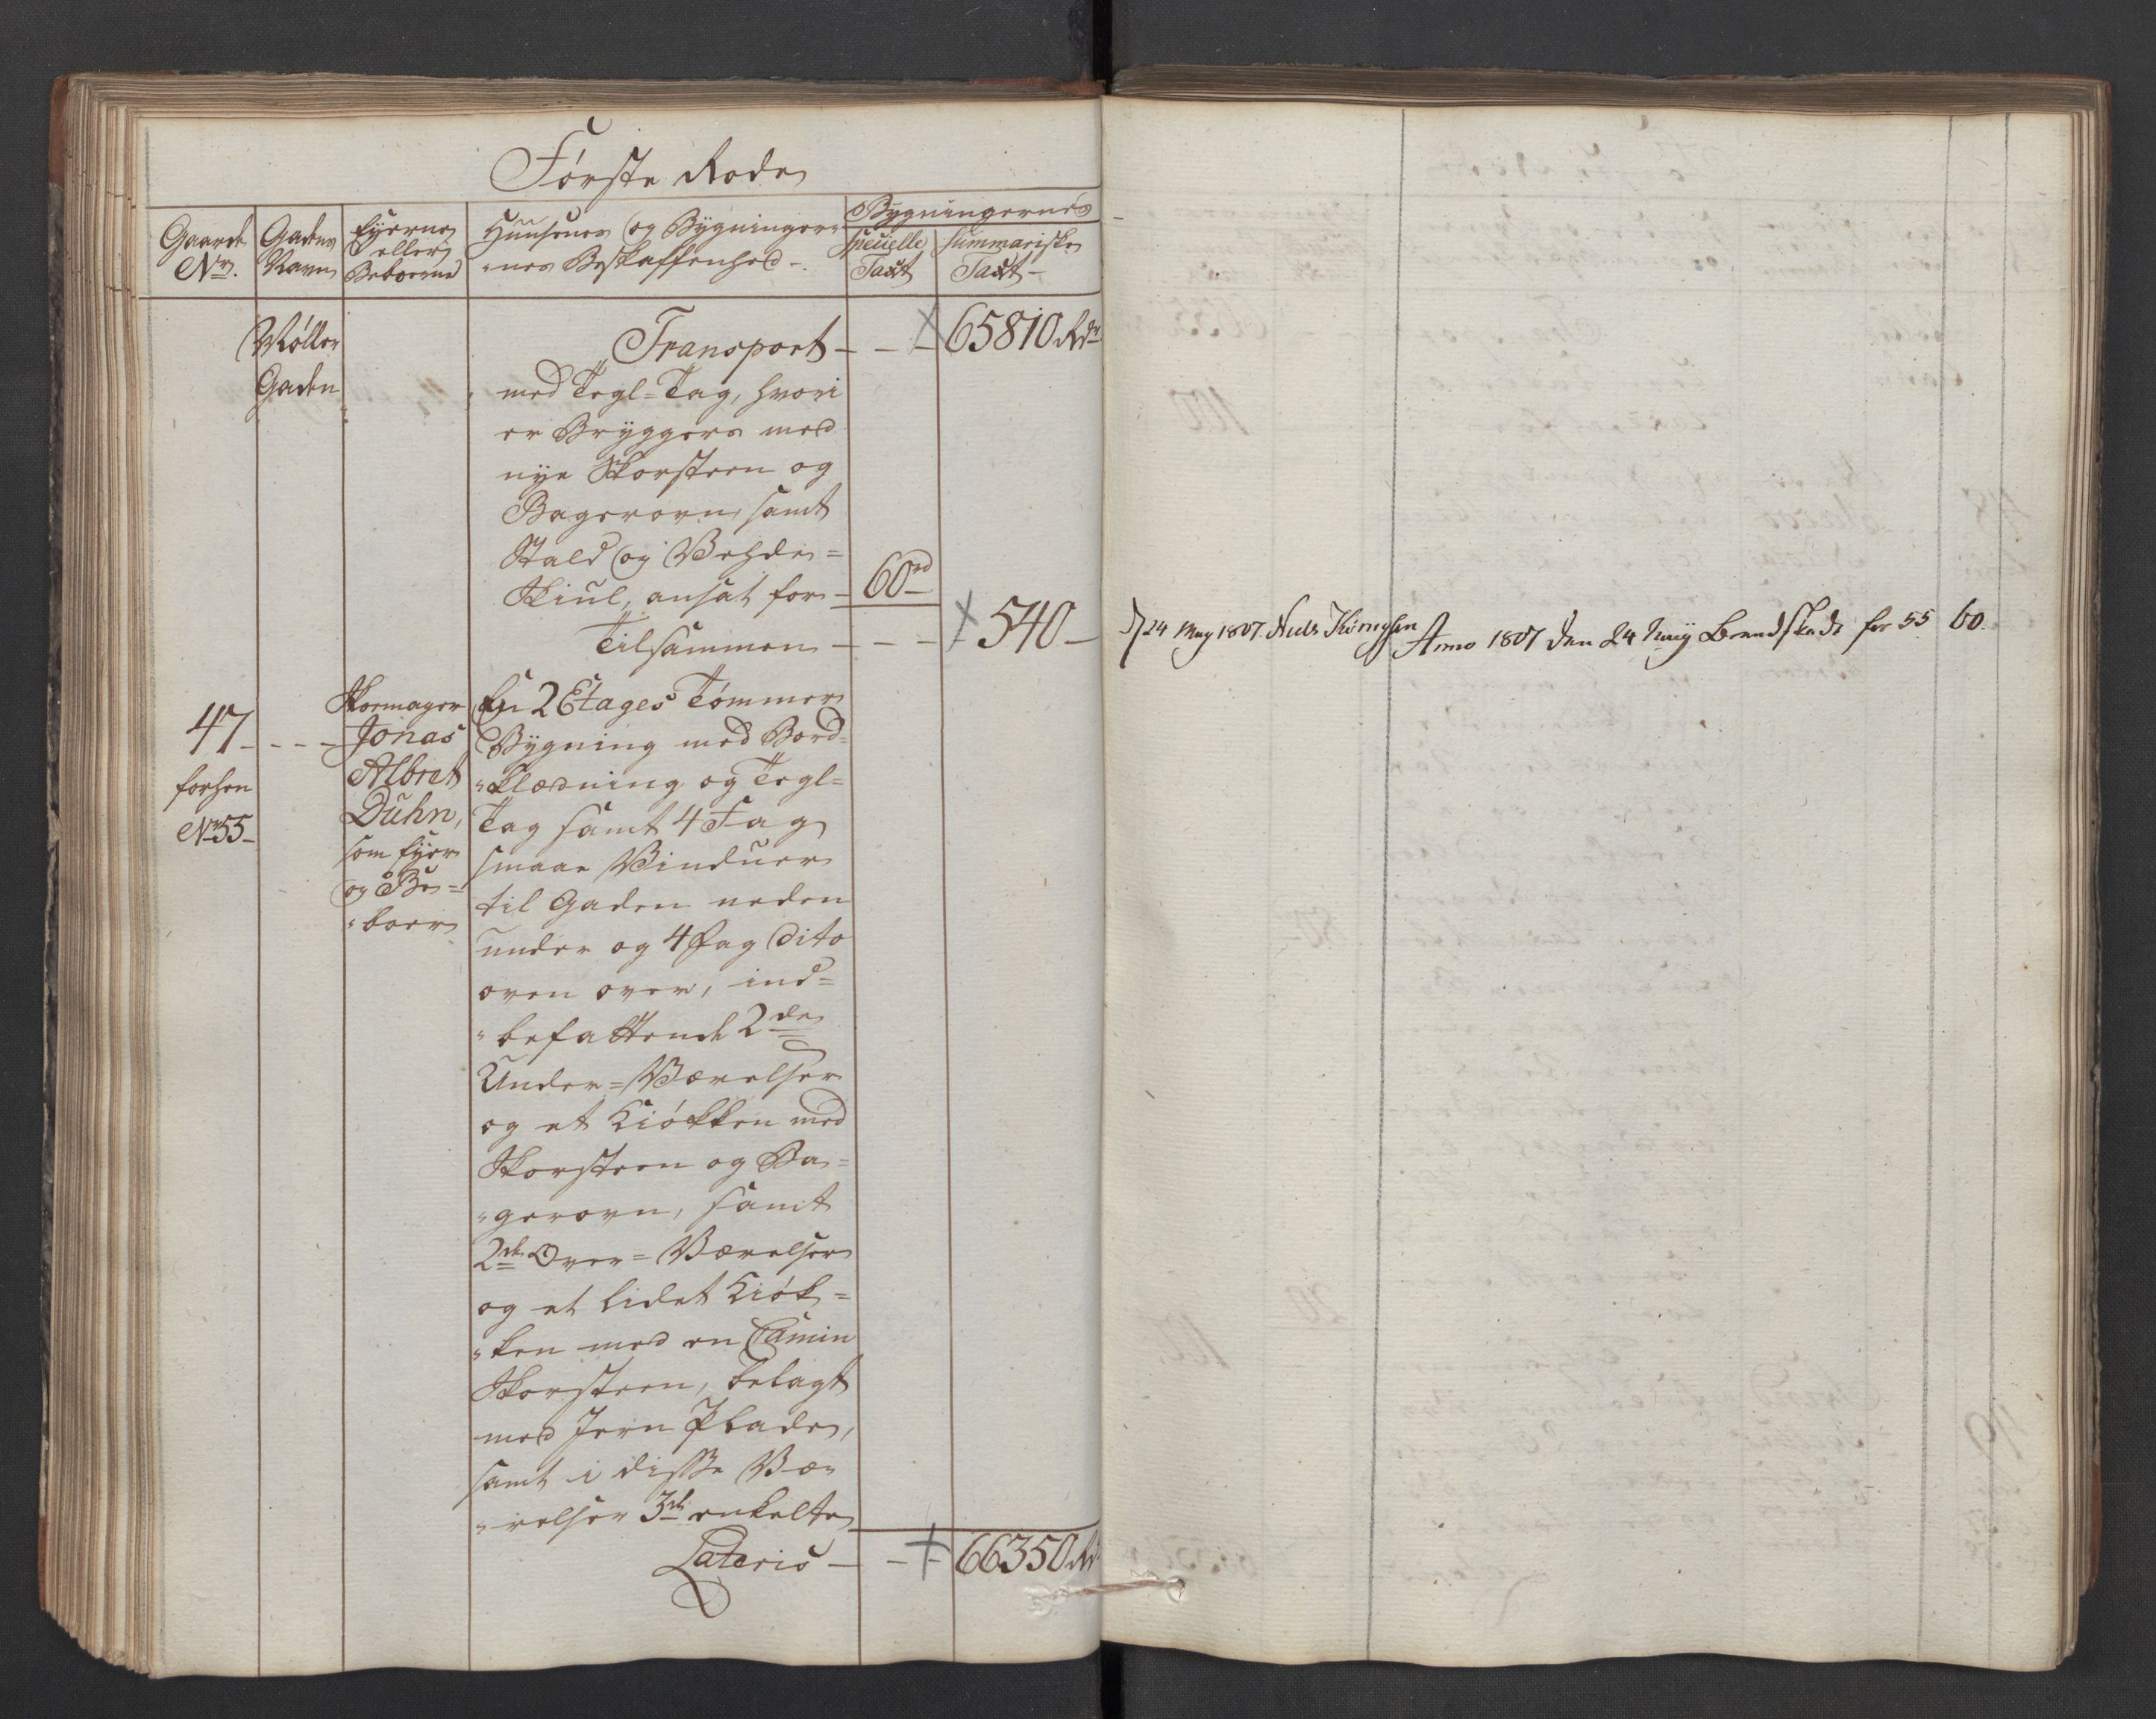 Første Rode
Gaarde No.
Gadens Navn
Eyerne eller Beboerne
Huusenes og Bygninger-
nes Beskaffenhed
Bygningernes
specielle Taxt
summariske Taxt
Møller
Gaden
Transport - - - 65810 Rdr
med Tegl=Tag, hvori
er Bryggers med
nye Skorsteen og
Bagerovn, samt
Stald og Vehde=
Skiul, ansat for - 60 rd
Tilsammen - - - 540 -
47 - - - -
forhen
No 55 -
Skoemager
Jonas
Albret
Duhn,
som Eyer
og Be=
boer
En 2 Etages Tømmer
Bygning med Bord=
klædning og Tegl=
Tag samt 4 Fag
smaae Vinduer
til Gaden neden
under og 4 Fag dito
oven over, ind=
befattende 2de
Under=Værelser
og et Kiøkken med
Skorsteen og Ba=
gerovn, samt
2de Over=Værelser
og et lidet Kiøk=
ken med en Camin
Skorsteen, belagt
med Jern Plade,
samt i disse Væ-
relser 3de enkelte
Lateris - - 66350 Rd
D 24 May 1807. Niels Anno 1807 den 24 May Brandskade for 55 60.